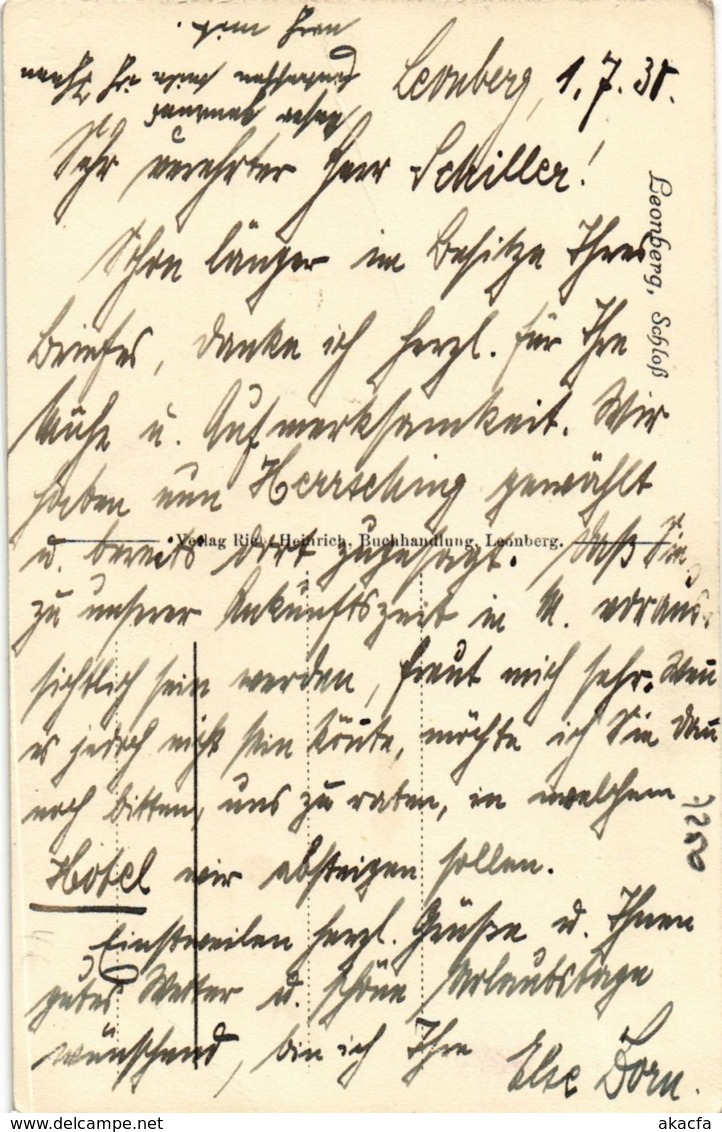 Leonberg, 1.7.38.
Sehr verehrter Herr Schiller!
Schon länger im Besitze Ihres
Briefes, danke ich herzl. für Ihre
Mühe u. Aufmerksamkeit. Wir
haben nun Herrsching gewählt
u. bereits dort zugesagt. Daß Sie
zu unserer Ankunftszeit in M. voraus-
sichtlich sein werden, freut mich sehr. Wenn
es jedoch nicht sein könnte, möchte ich Sie dann
noch bitten, uns zu raten, in welchem
Hotel wir absteigen sollen.
Einstweilen herzl. Grüße u. Ihnen
gutes Wetter u. schöne Urlaubstage
wünschend, bin ich Ihre Else Dorn.
Leonberg, Schloß
Verlag Heinrich, Buchhandlung, Leonberg.
7280
akacfa
www.delcampe.net